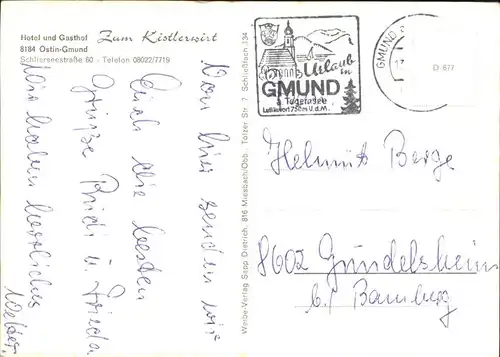 Hotel und Gasthof Zum Kistlerwirt
8184 Ostin-Gmund
Schlierseestraße 60 - Telefon 08022/7719
Von hier senden wir
Euch die besten
Grüße Rudi u. Frieda
Wir haben herrliches
Wetter.
Werbe-Verlag Sepp Dietrich, 816 Miesbach/Obb., Tölzer Str. 7, Schließfach 134
Urlaub
in
GMUND
a. Tegernsee
Luftkurort 750m ü.d.M.
GMUND
D 677
Helmut Berge
8602 Gundelsheim
b/ Bamberg